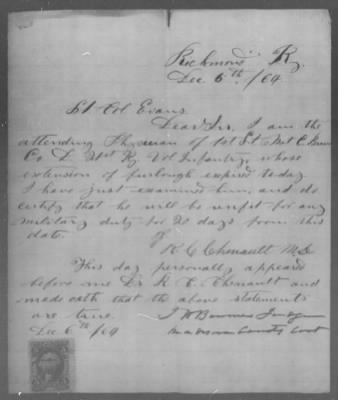 Richmond Ky.
Dec 6th /64
Lt Col Evans
Dear Sir, I am the
attending Physician of 1st Lt
Co 21st Ky Vol Infantry, whose
extension of furlough expired today.
I have just examined him, and do
certify that he will be unfit for any
military duty for 20 days from this
date.
R C Chenault M.D
This day personally appeared
before me Dr R. C. Chenault and
made oath that the above statements
are true.
Dec 6th /64
Madison County Court